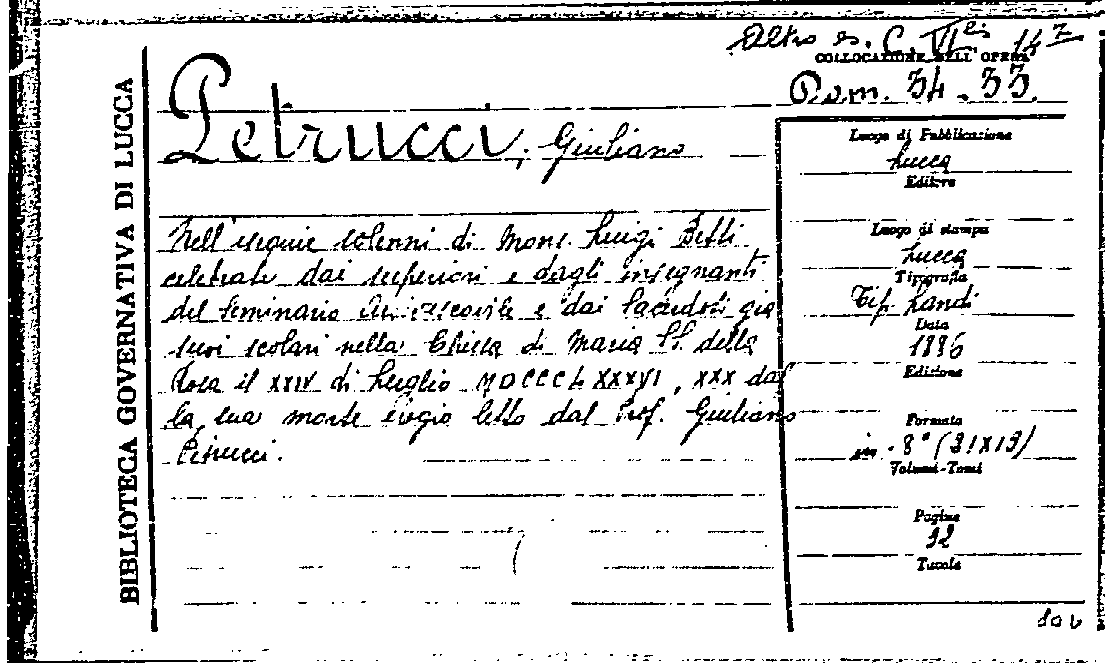 Altro es. C. VI 147
COLLOCAZIONE DELL'OPERA
Dom. 34-33.
BIBLIOTECA GOVERNATIVA DI LUCCA
Petrucci, Giuliano
Nell'esequie solenni di Mons. Luigi Betti
celebrate dai superiori e dagli insegnanti
del Seminario Arcivescovile e dai Sacerdoti già
suoi scolari nella Chiesa di Maria SS. della
Rosa il XXIV di Luglio MDCCCLXXXVI, XXX dal
la sua morte elogio letto dal Prof. Giuliano
Petrucci.
Luogo di Pubblicazione
Lucca
Editore
Luogo di stampa
Lucca
Tipografia
Tip. Landi
Data
1886
Edizione
Formato
in-8° (21X13)
Volumi-Tomi
Pagine
32
Tavole